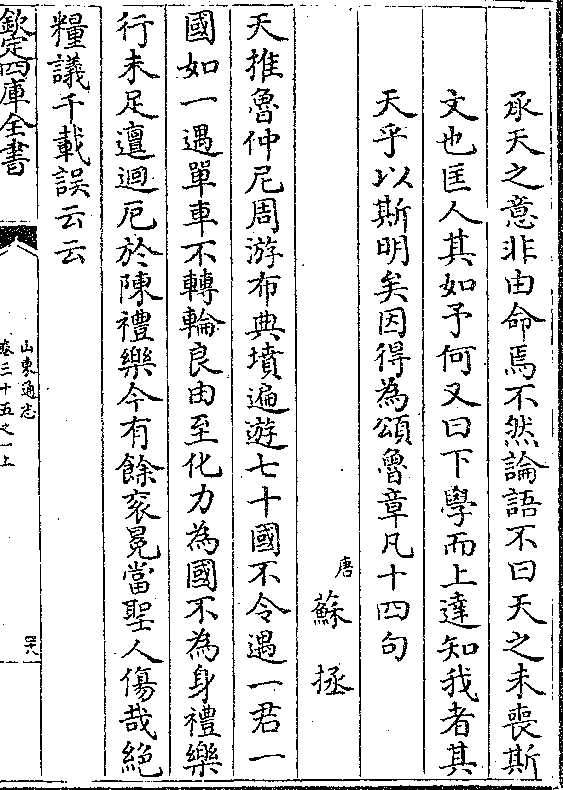 承天之意非由命焉不然論語不曰天之未喪斯
文也匡人其如予何又曰下學而上達知我者其
天乎以斯明矣因得為頌魯章凡十四句
唐蘇拯
天推魯仲尼周游布典墳遍遊七十國不令遇一君一
國如一遇單車不轉輪良由至化力為國不為身禮樂
行未足邅迴厄於陳禮樂今有餘衮冕當聖人傷哉絶
糧議千載誤云云
欽定四庫全書
山東通志
卷三十五之一上